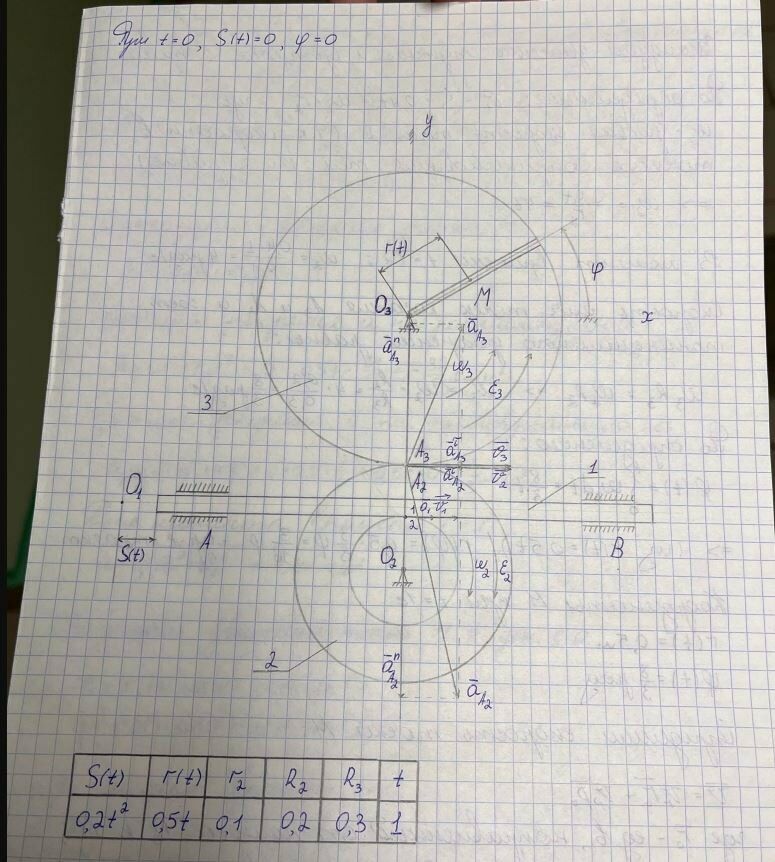 При t=0, S(t)=0, φ=0
y
r(t)
M
φ
O₃
x
ā_A₃
ā^n_A₃
ω₃
ε₃
3
A₃
ā^τ_A₃
v̄₃
A₂
ā^τ_A₂
v̄₂
1
O₁
1
ā₁ v̄₁
2
S(t)
A
B
O₂
ω₂
ε₂
2
ā^n_A₂
ā_A₂
S(t) r(t) r₂ R₂ R₃ t
0,2t² 0,5t 0,1 0,2 0,3 1